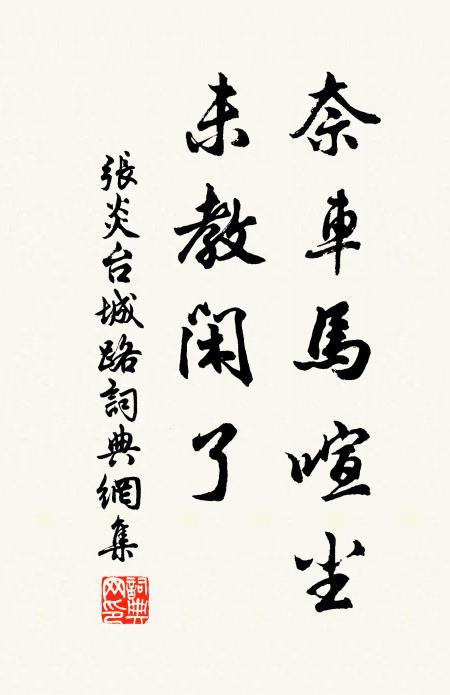 奈車馬喧尘
未教闲了
張炎台城路詞典網集
詞典网印